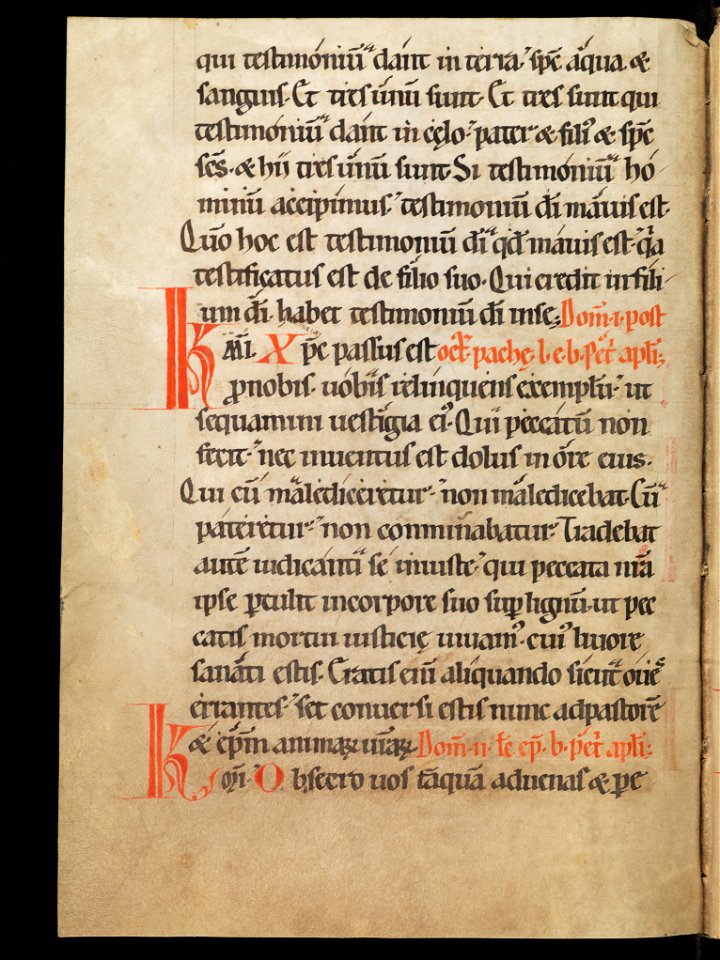 qui testimóniū dant in terra. sp̄c aqua. &
sanguis. Et tres unū sunt. Et tres sunt qui
testimóniū dant in cęlo. pater & fili᷒ & sp̄c
sc̄s. & hii tres unū sunt. Si testimóniū ho
minū accipimus. testimoniū dī maius est.
Qm̄o hoc est testimoniū dī qđ maius est. q̄a
testificatus est de filio suo. Qui credit in fili
um dī. habet testimoniū dī in se; Dom̄. i. post
Km̄i. Xp̄c passus est oct̄. pachę. l. e. b. pet̄ apl̄i;
ꝓ nobis. uobis relinquens exemplū. ut
sequamini uestigia ei᷒. Qui peccatū non
fecit. nec inuentus est dolus in ore eius.
Qui cū maledíceretur. non maledicebat. Cū
pateretur. non comminabatur. Tradebat
autē iudicanti se iniuste. qui peccata nr̄a
ipse ꝑtulit in corpore suo sup̄ lignū. ut pec
catis mortui iusticię uiuam᷒. cui᷒ liuore
sanati estis. Eratis enī aliquando sicut oues
errantes. set conuersi estis nunc ad pastorē
& ep̄m animaꝝ ur̄aꝝ. Dom̄. ii. lc̄ ep̄. b. pet̄ apl̄i;
Km̄i. Obsecro uos tāquā aduenas & ꝑe